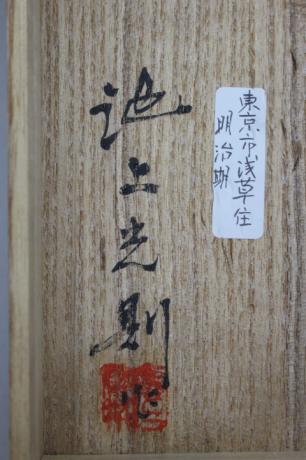 東京市浅草住
明治期
池上光則作